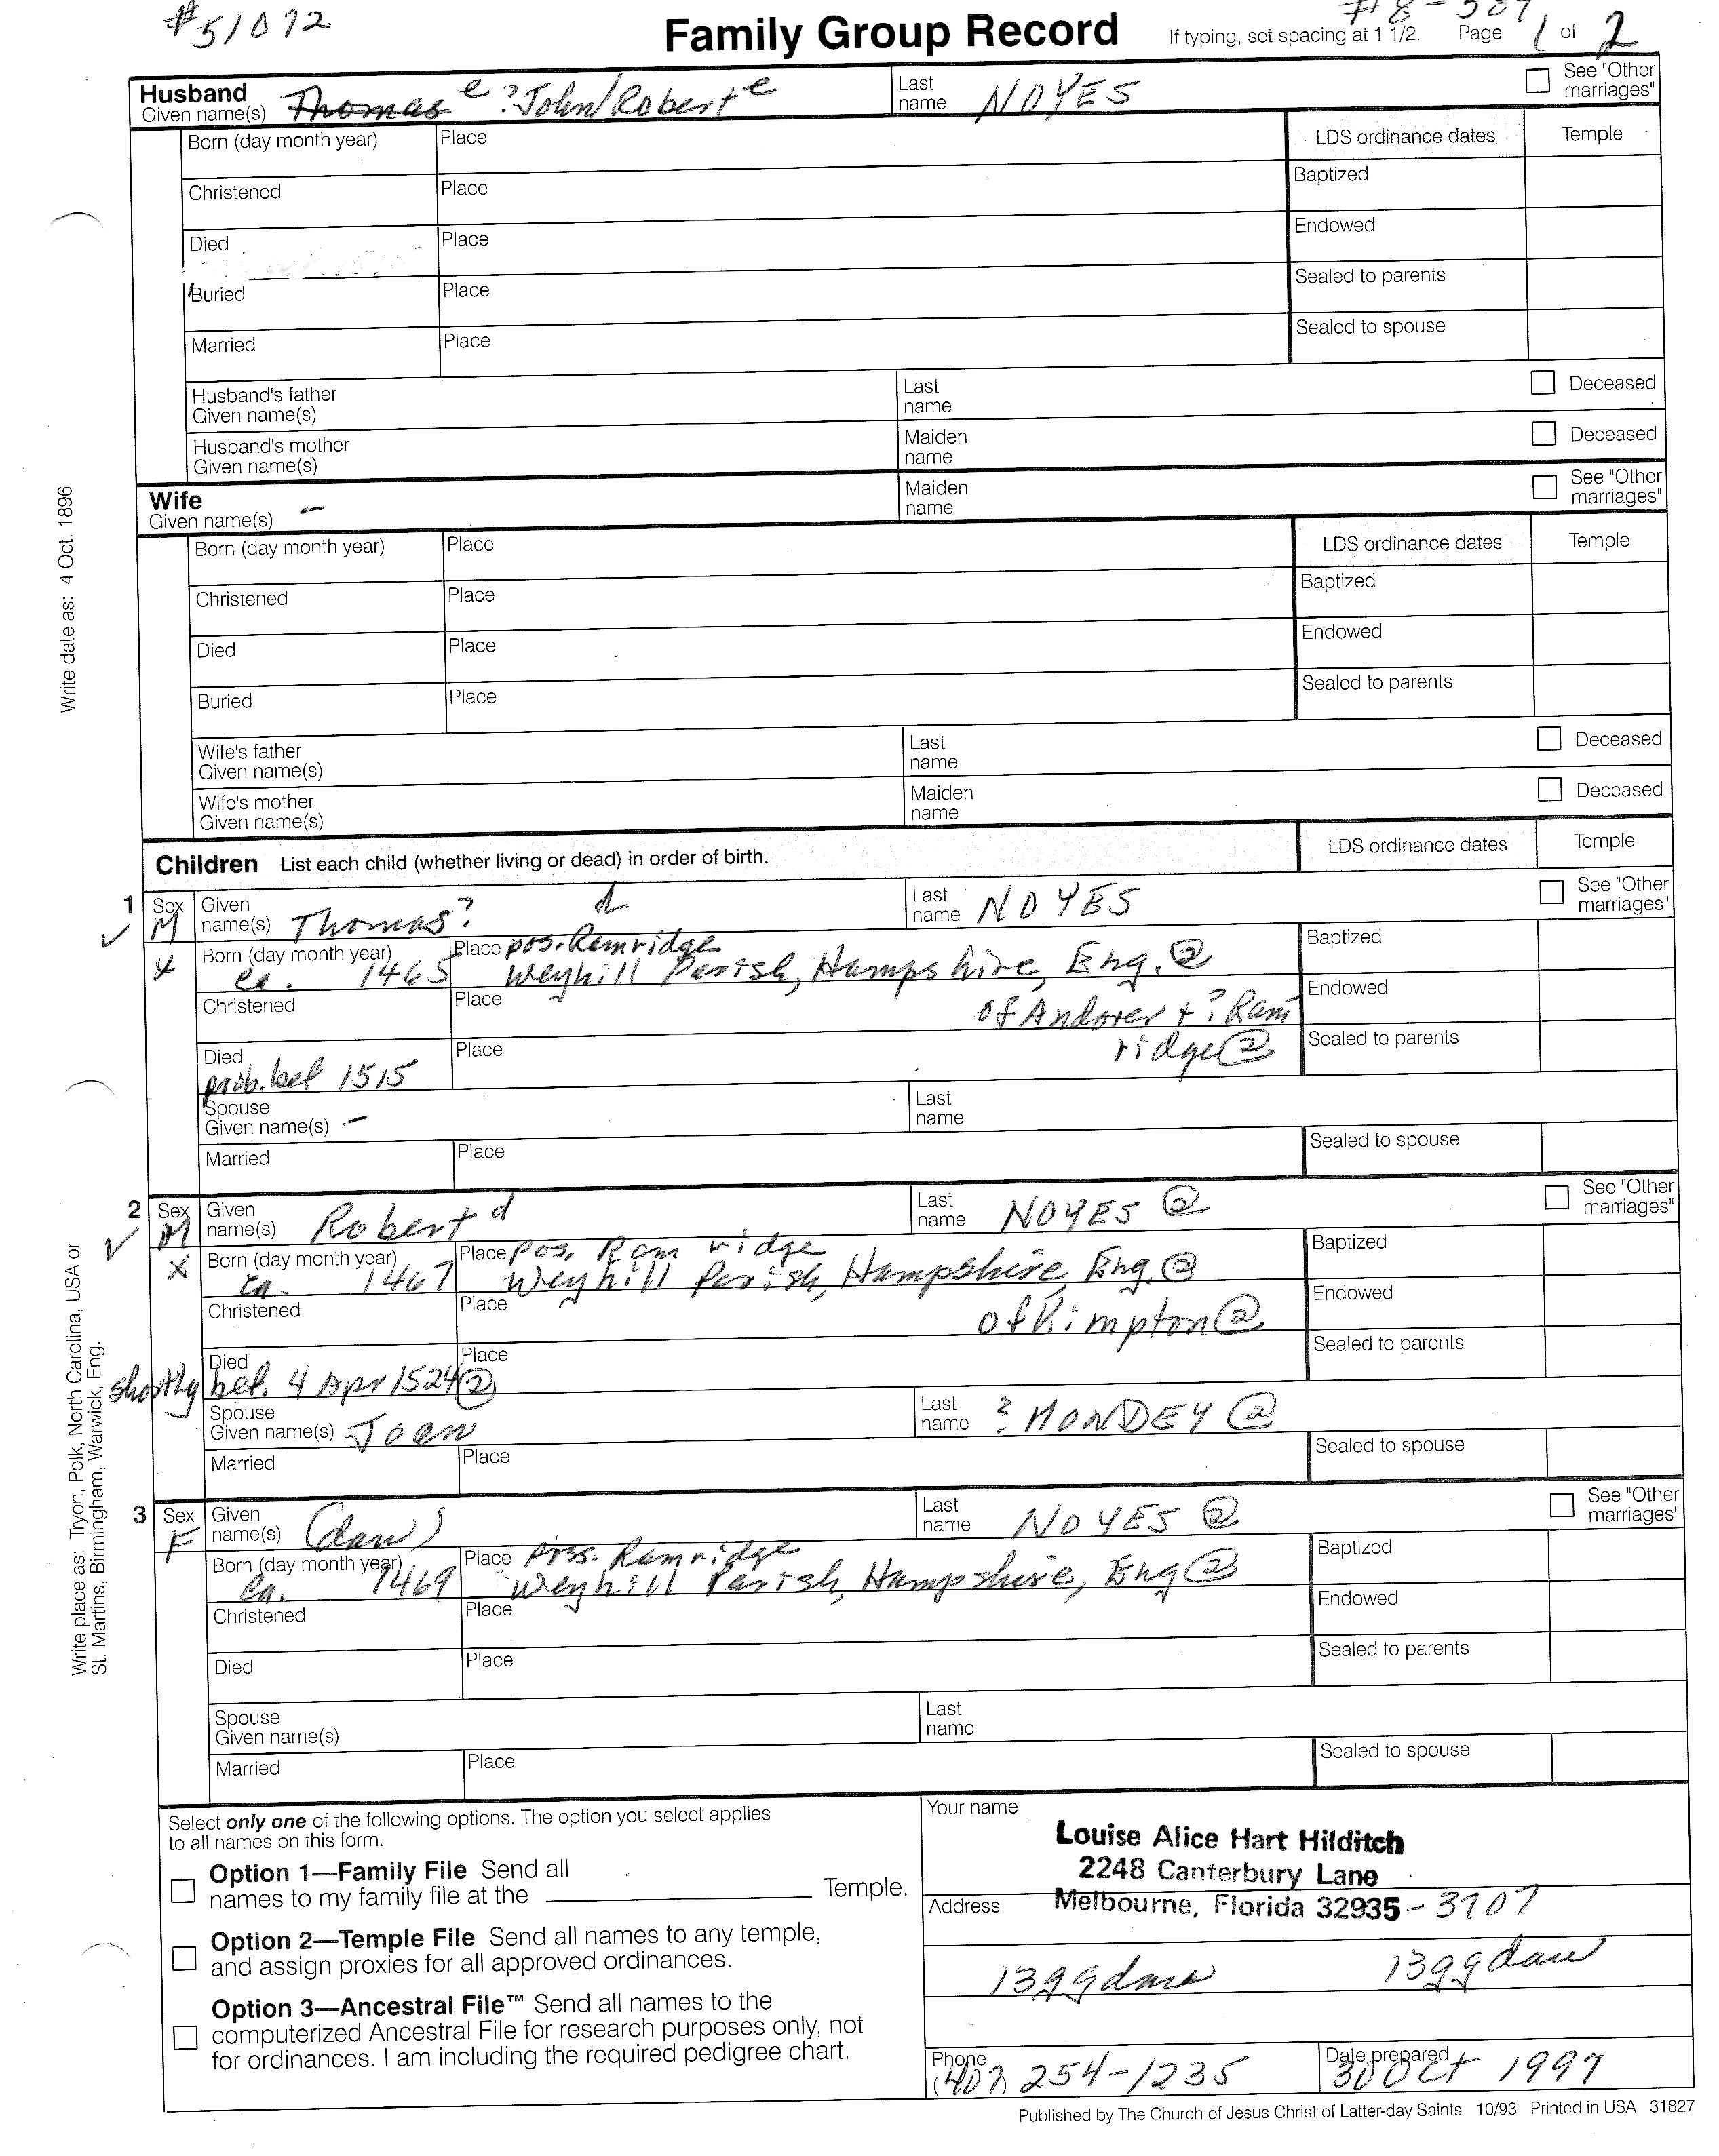 #51072
Family Group Record If typing, set spacing at 1 1/2. Page 1 of 2
Husband
Given name(s) Thomas e ?John/Robert e Last name NOYES See "Other marriages"
Born (day month year) Place LDS ordinance dates Temple
Christened Place Baptized
Died Place Endowed
Buried Place Sealed to parents
Married Place Sealed to spouse
Husband's father Given name(s) Last name Deceased
Husband's mother Given name(s) Maiden name Deceased
Wife
Given name(s) – Maiden name See "Other marriages"
Born (day month year) Place LDS ordinance dates Temple
Christened Place Baptized
Died Place Endowed
Buried Place Sealed to parents
Wife's father Given name(s) Last name Deceased
Wife's mother Given name(s) Maiden name Deceased
Children List each child (whether living or dead) in order of birth. LDS ordinance dates Temple
1 Sex M Given name(s) Thomas? d Last name NOYES See "Other marriages"
Born (day month year) ca. 1465 Place pos. Ramridge
Weyhill Parish, Hampshire, Eng. ② Baptized
Christened Place of Andover + ? Ram Endowed
ridge ②
Died prob. bef 1515 Place Sealed to parents
Spouse Given name(s) – Last name
Married Place Sealed to spouse
2 Sex M Given name(s) Robert d Last name NOYES ② See "Other marriages"
Born (day month year) ca. 1467 Place pos. Ramridge
Weyhill Parish, Hampshire, Eng. ② Baptized
Christened Place of Kimpton ② Endowed
Died shortly bef. 4 Apr 1524 ② Place Sealed to parents
Spouse Given name(s) Joan Last name ? MONDEY ②
Married Place Sealed to spouse
3 Sex F Given name(s) (dau) Last name NOYES ② See "Other marriages"
Born (day month year) ca. 1469 Place poss. Ramridge
Weyhill Parish, Hampshire, Eng ② Baptized
Christened Place Endowed
Died Place Sealed to parents
Spouse Given name(s) Last name
Married Place Sealed to spouse
Select only one of the following options. The option you select applies
to all names on this form.
Option 1—Family File Send all
names to my family file at the Temple.
Option 2—Temple File Send all names to any temple,
and assign proxies for all approved ordinances.
Option 3—Ancestral File™ Send all names to the
computerized Ancestral File for research purposes only, not
for ordinances. I am including the required pedigree chart.
Your name
Louise Alice Hart Hilditch
2248 Canterbury Lane
Address Melbourne, Florida 32935-3707
13ggdau 13ggdau
Phone (407) 254-1235 Date prepared 30 Oct 1997
Published by The Church of Jesus Christ of Latter-day Saints 10/93 Printed in USA 31827
Write date as: 4 Oct. 1896
Write place as: Tryon, Polk, North Carolina, USA or
St. Martins, Birmingham, Warwick, Eng.